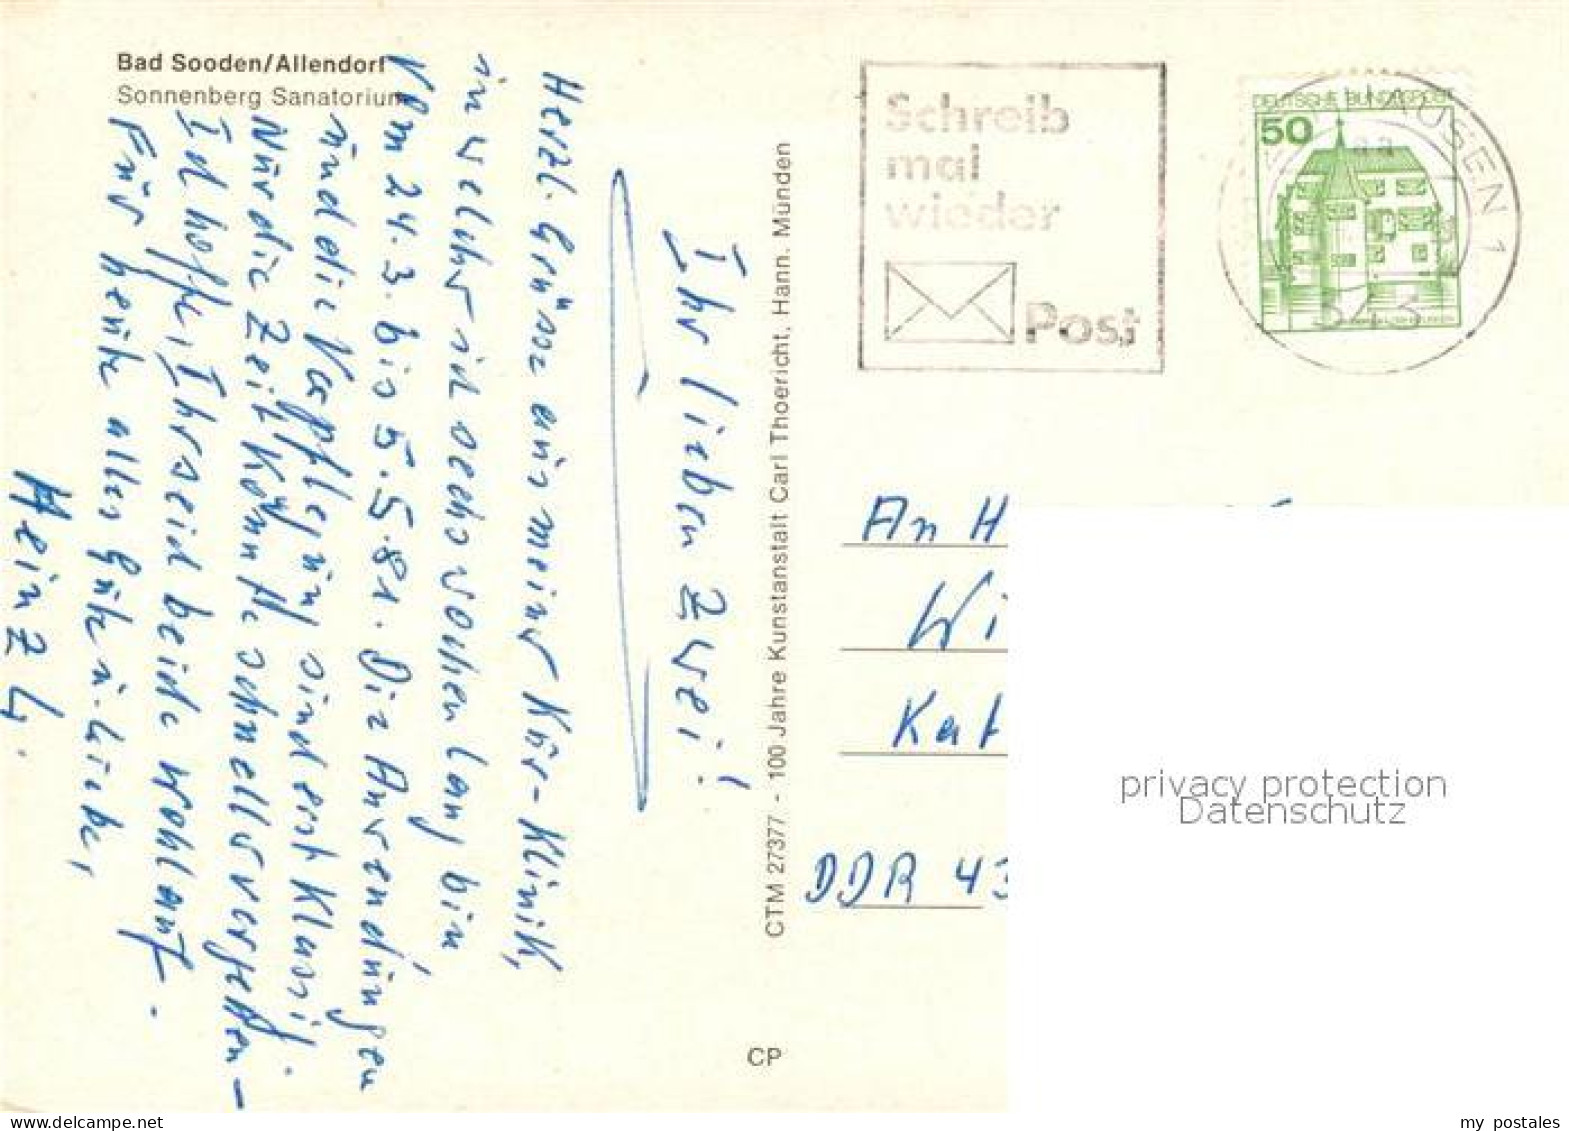 Bad Sooden/Allendorf
Sonnenberg Sanatorium
Ihr lieben Zwei!
Herzl. Grüsse aus meiner Kur-Klinik,
in welcher ich sechs Wochen lang bin,
vom 24.3. bis 5.5.81. Die Anwendungen
und die Verpflegung sind erst Klassig.
Nur die Zeit könnte schneller vergehen –
Ich hoffe, Ihr seid beide wohlauf.
Für heute alles Gute u. Liebe,
Heinz
CTM 27377 - 100 Jahre Kunstanstalt Carl Thoericht, Hann. Münden
CP
Schreib
mal
wieder
Post
DEUTSCHE BUNDESPOST
50
HAUSEN 1
343
An H
Wi
Kat
DDR 43
privacy protection
Datenschutz
www.delcampe.net
my_postales